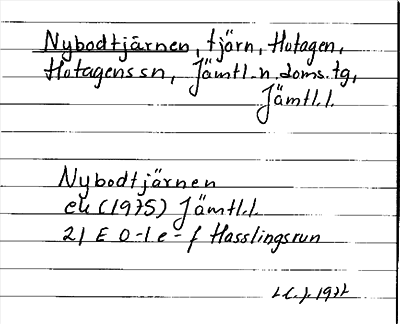 Nybodtjärnen, tjärn, Hotagen,
Hotagens sn, Jämtl. n. doms. tg,
Jämtl. l.
Nybodtjärnen
ek (1975) Jämtl. l.
21 E 0-1 e-f Hasslingsrun